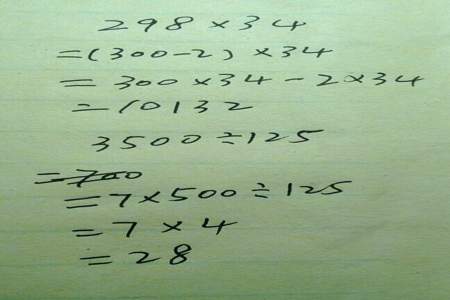 298×34
=(300-2)×34
=300×34-2×34
=10132
3500÷125
=700
=7×500÷125
=7×4
=28